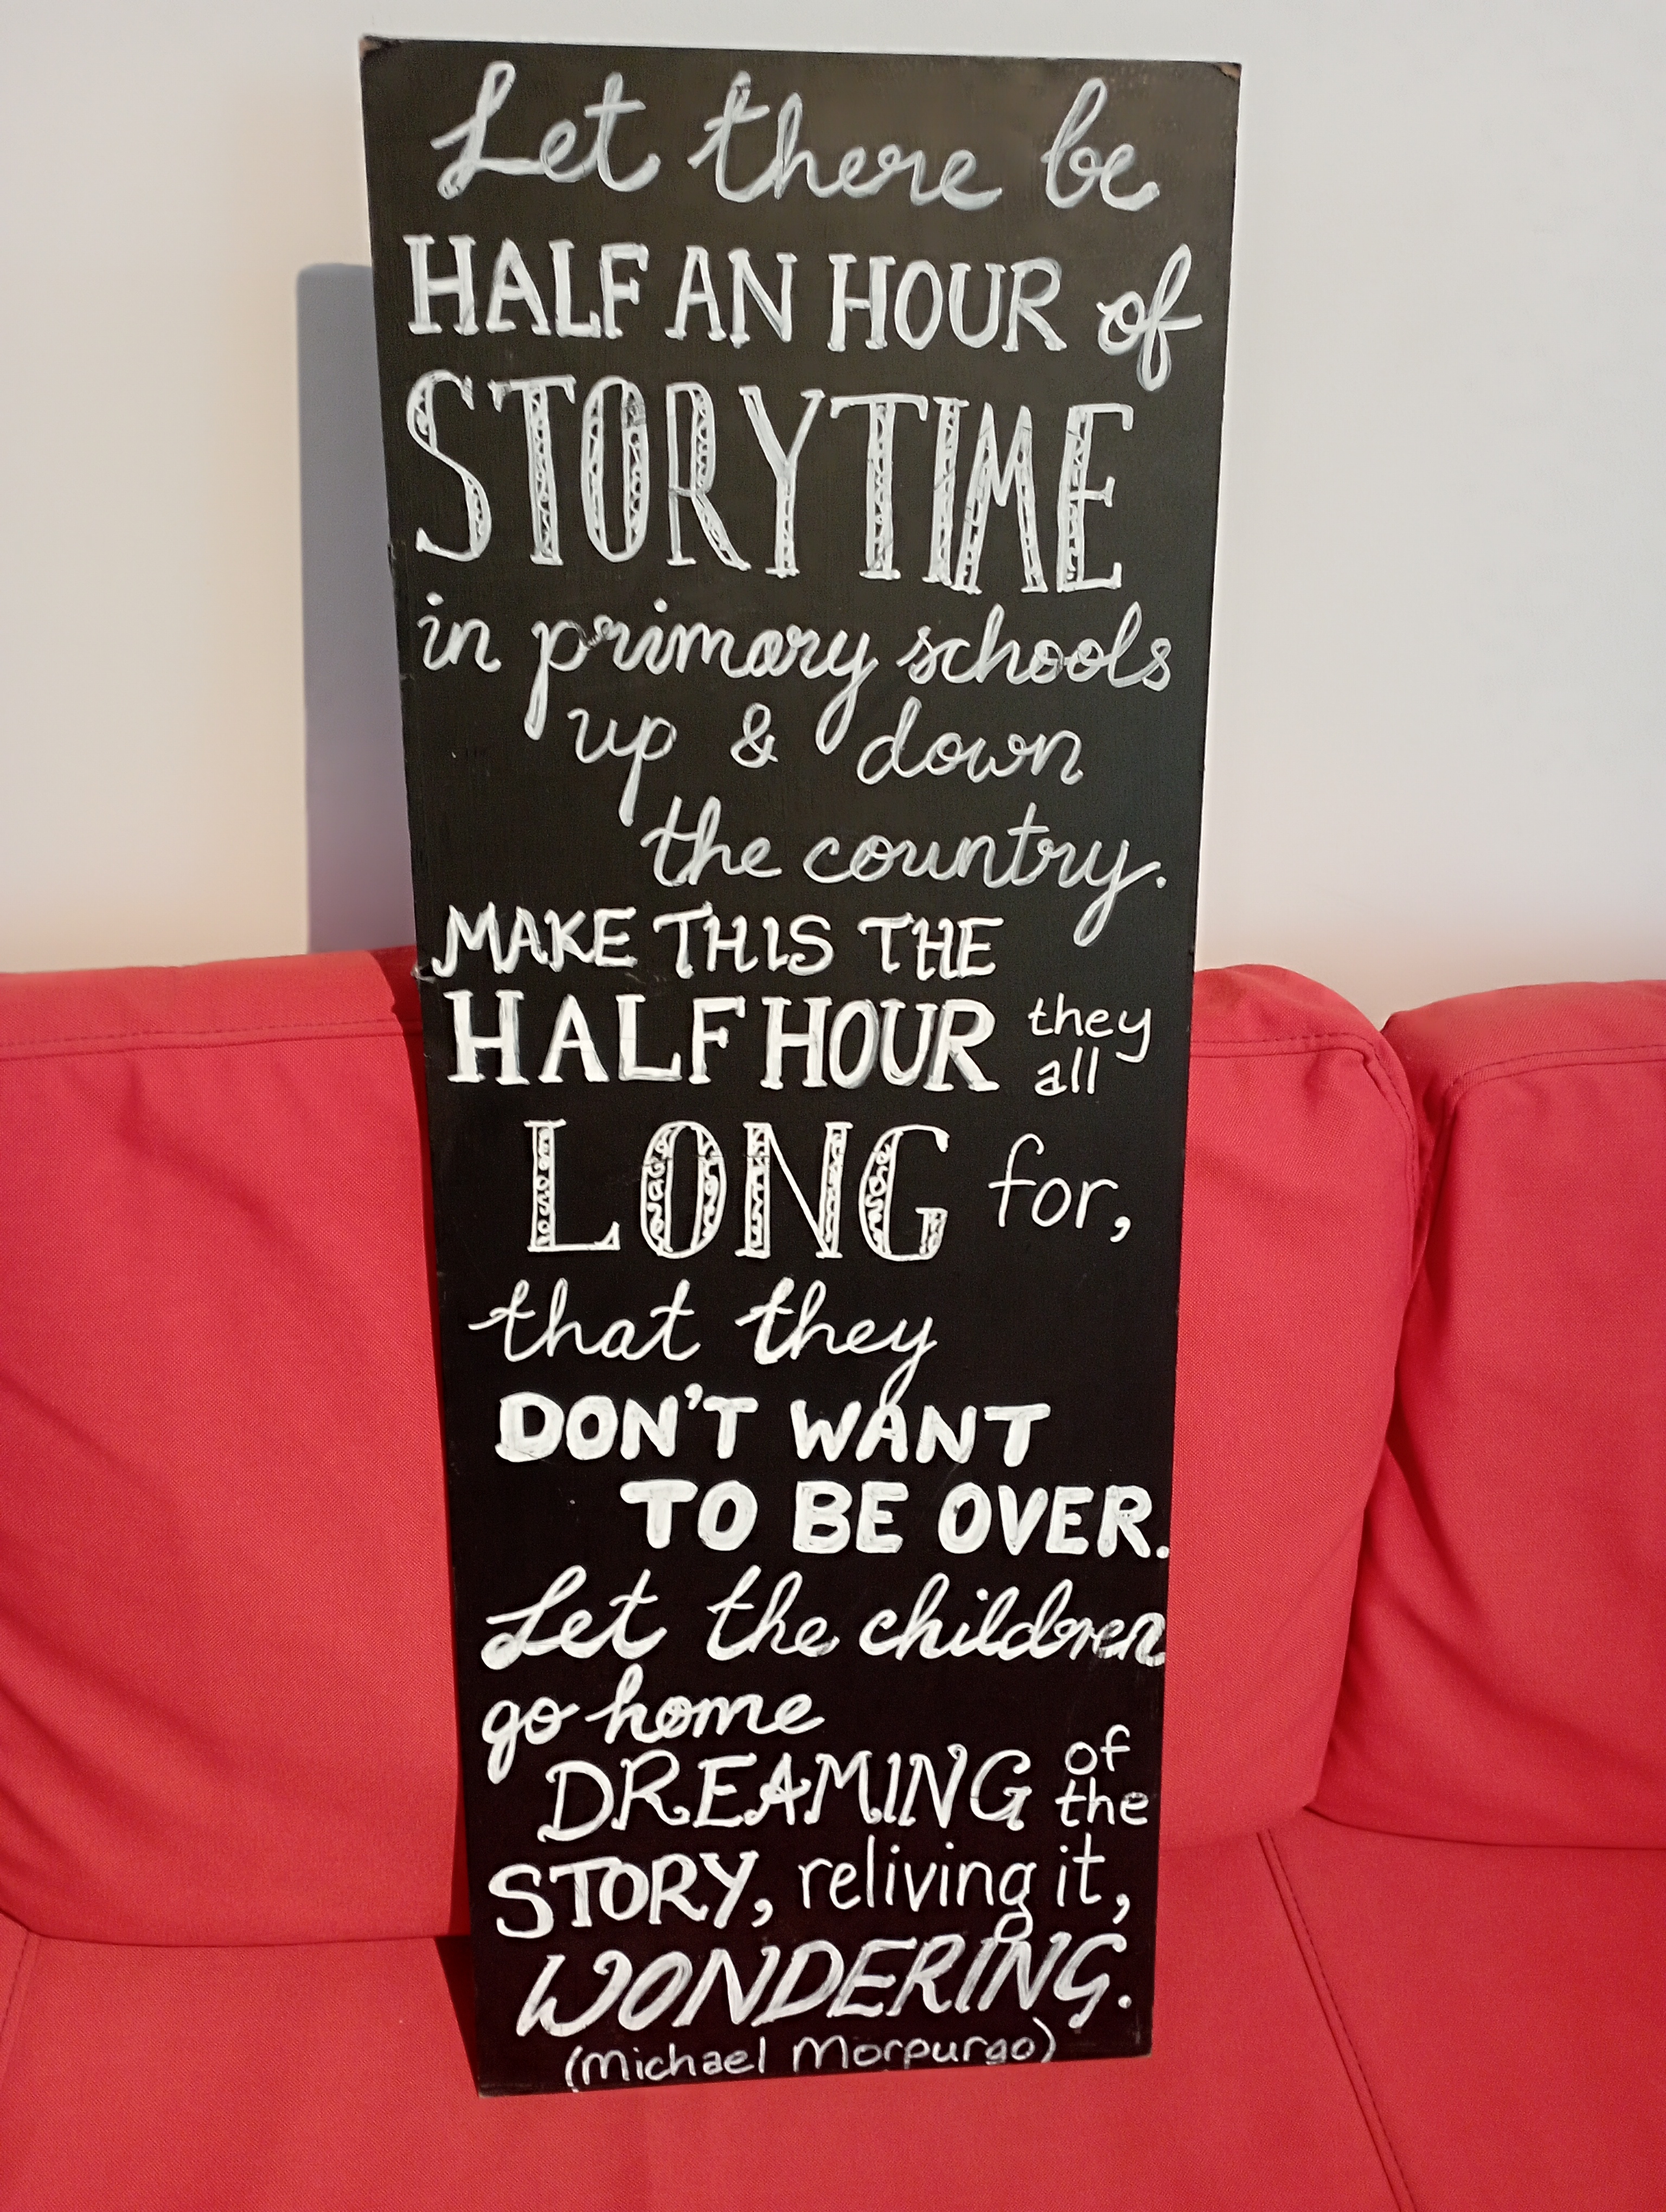 Let there be
HALF AN HOUR of
STORYTIME
in primary schools
up & down
the country.
MAKE THIS THE
HALF HOUR they
all
LONG for,
that they
DON'T WANT
TO BE OVER.
Let the children
go home
DREAMING of
the
STORY, reliving it,
WONDERING.
(Michael Morpurgo)